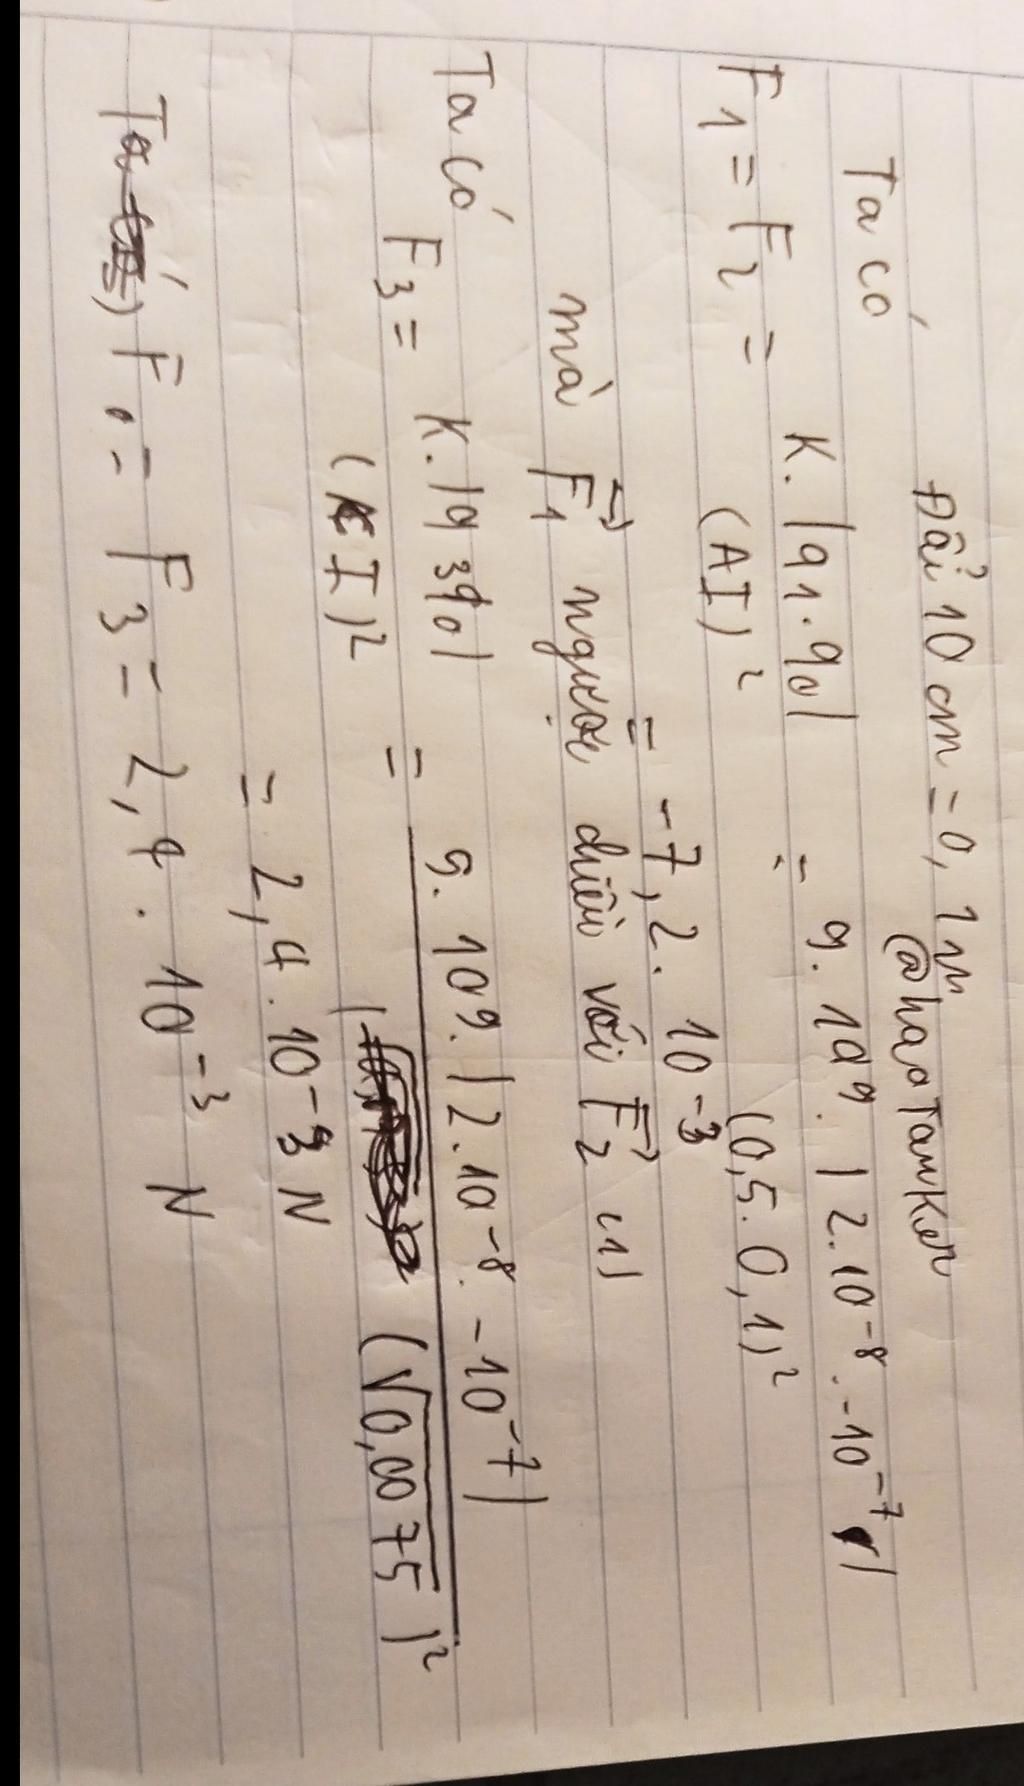 Đổi 10 cm = 0,1m
@haotamken
Ta có
F1 = F2 = K.|q1.q0| / (AI)² = 9.10⁹.|2.10⁻⁸.-10⁻⁷| / (0,5.0,1)²
= -7,2.10⁻³
mà F⃗1 ngược chiều với F⃗2 (1)
Ta có
F3 = K.|q3q0| / (CI)² = 9.10⁹.|2.10⁻⁸.-10⁻⁷| / (√0,0075)²
= 2,4.10⁻³ N
F0 = F3 = 2,4.10⁻³ N